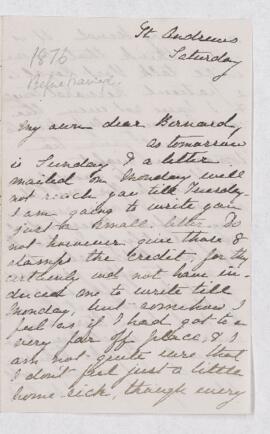 St. Andrews
Saturday
1876
My own dear Bernard,
as tomorrow
is Sunday & a letter
mailed on Monday will
not reach you till Tuesday
I am going to write you
just a small letter. Do
not however give those 8
stamps the credit, for they
certainly wd not have in-
duced me to write till
Monday, but somehow I
feel as if I had got to a
very far off place, & I
am not quite sure that
I don't feel just a little
home sick, though every